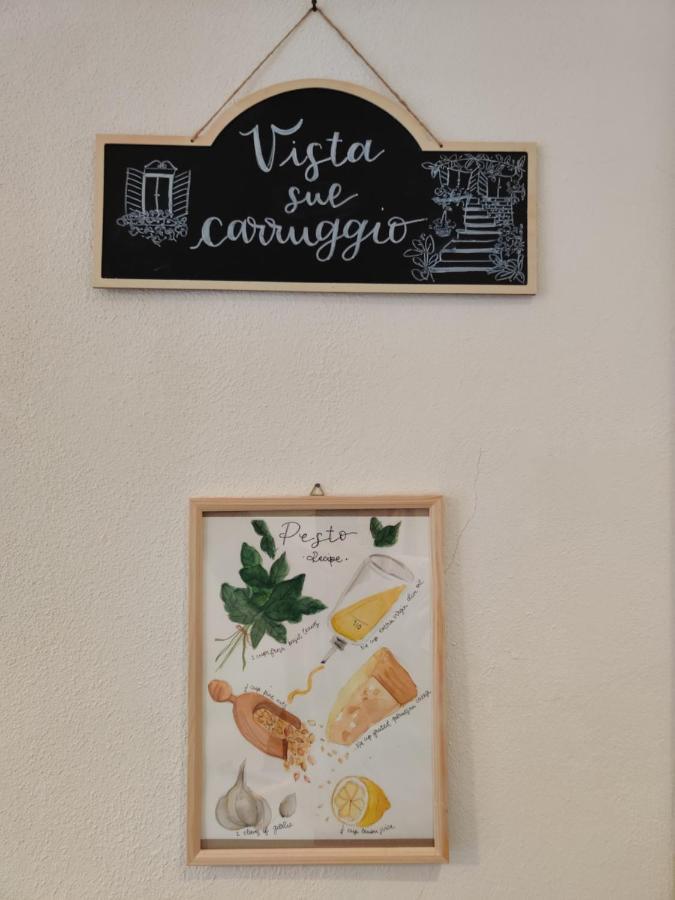 Vista
sul
carruggio
Pesto
Recipe
2 cups fresh basil leaves
cup extra virgin olive oil
cup pine nuts
cup grated parmesan cheese
2 cloves of garlic
cup lemon juice